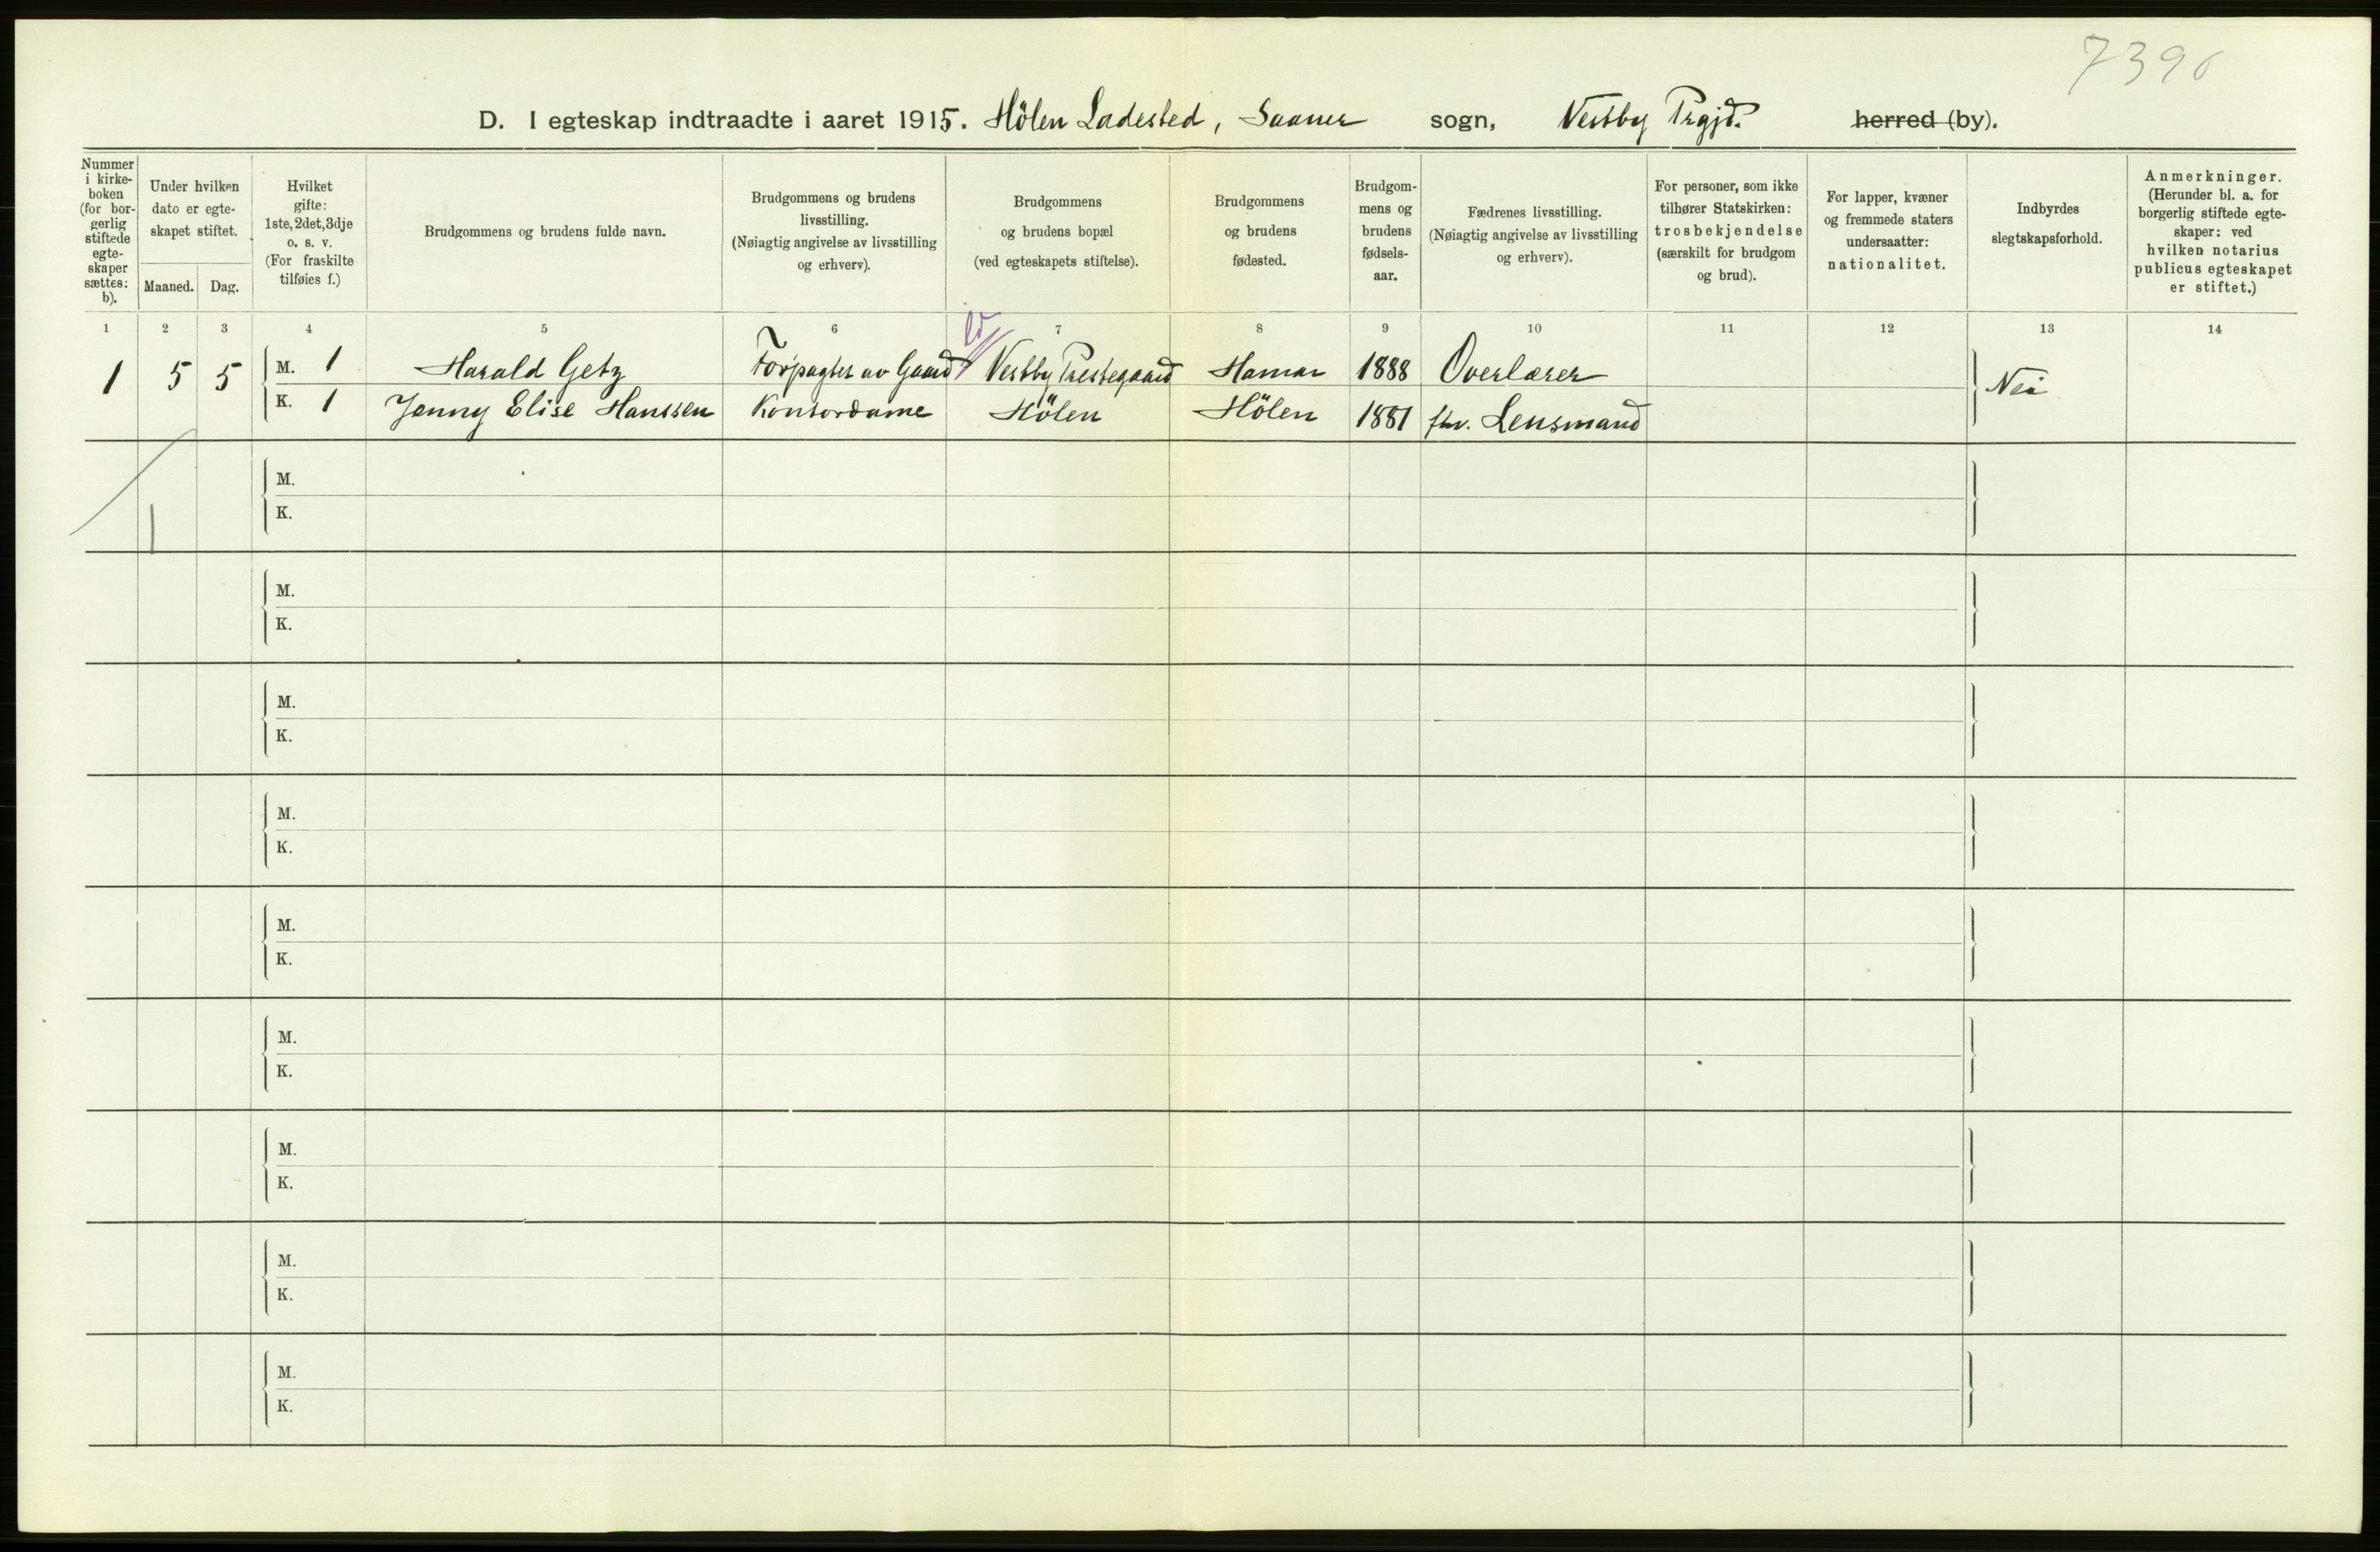 7390
D. I egteskap indtraadte i aaret 1915. Hölen Ladested, Saaner sogn, Vestby Prgjd. herred (by).
Nummer
i kirke-
boken
(for bor-
gerlig
stiftede
egte-
skaper
sættes:
b).
Under hvilken
dato er egte-
skapet stiftet.
Maaned. Dag.
Hvilket
gifte:
1ste, 2det, 3dje
o. s. v.
(For fraskilte
tilføies f.)
Brudgommens og brudens fulde navn.
Brudgommens og brudens
livsstilling.
(Nøiagtig angivelse av livsstilling
og erhverv).
Brudgommens
og brudens bopæl
(ved egteskapets stiftelse).
Brudgommens
og brudens
fødested.
Brudgom-
mens og
brudens
fødsels-
aar.
Fædrenes livsstilling.
(Nøiagtig angivelse av livsstilling
og erhverv).
For personer, som ikke
tilhører Statskirken:
trosbekjendelse
(særskilt for brudgom
og brud).
For lapper, kvæner
og fremmede staters
undersaatter:
nationalitet.
Indbyrdes
slegtskapsforhold.
Anmerkninger.
(Herunder bl. a. for
borgerlig stiftede egte-
skaper: ved
hvilken notarius
publicus egteskapet
er stiftet.)
1 2 3 4 5 6 7 8 9 10 11 12 13 14
1 5 5 M. 1 Harald Getz Forpagter av Gaard Vestby Prestegaard Hamar 1888 Overlærer Nei
K. 1 Jenny Elise Hanssen Kontordame Hölen Hölen 1881 fhv. Lensmand
M.
1
K.
M.
K.
M.
K.
M.
K.
M.
K.
M.
K.
M.
K.
M.
K.
M.
K.